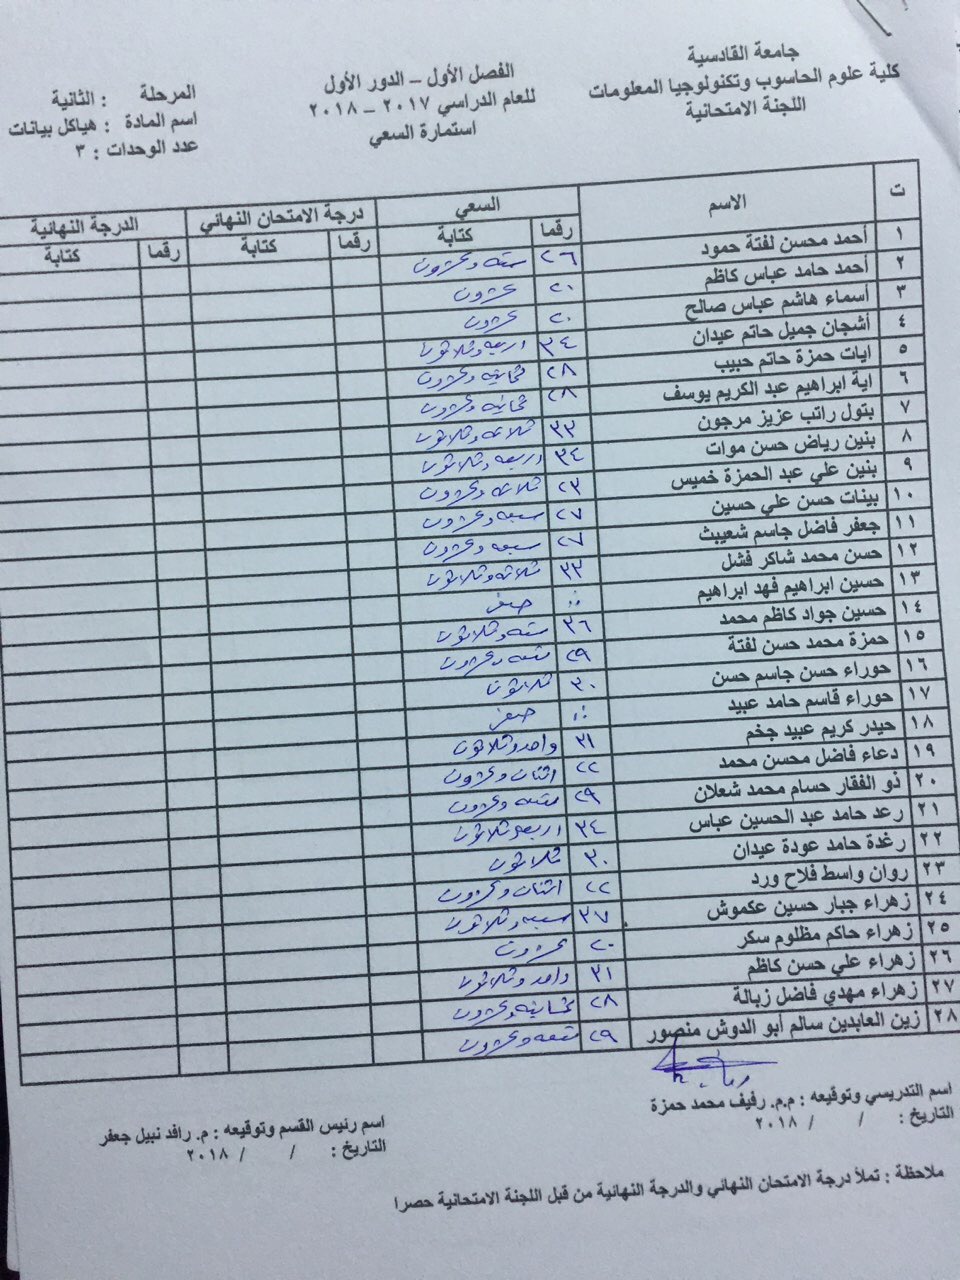 جامعة القادسية
كلية علوم الحاسوب وتكنولوجيا المعلومات
اللجنة الامتحانية
الفصل الأول – الدور الأول
للعام الدراسي ٢٠١٧ – ٢٠١٨
استمارة السعي
المرحلة : الثانية
اسم المادة : هياكل بيانات
عدد الوحدات : ٣
ت الاسم السعي درجة الامتحان النهائي الدرجة النهائية
رقما كتابة رقما كتابة رقما كتابة
١ أحمد محسن لفتة حمود ٢٦ ستة وعشرون
٢ أحمد حامد عباس كاظم ٢٠ عشرون
٣ أسماء هاشم عباس صالح ٢٠ عشرون
٤ أشجان جميل حاتم عيدان ٣٤ اربعة وثلاثون
٥ ايات حمزة حاتم حبيب ٢٨ ثمانية وعشرون
٦ اية ابراهيم عبد الكريم يوسف ٢٨ ثمانية وعشرون
٧ بتول راتب عزيز مرجون ٣٣ ثلاثة وثلاثون
٨ بنين رياض حسن موات ٣٤ اربعة وثلاثون
٩ بنين علي عبد الحمزة خميس ٢٣ ثلاثة وعشرون
١٠ بينات حسن علي حسين ٢٧ سبعة وعشرون
١١ جعفر فاضل جاسم شعيبث ٢٧ سبعة وعشرون
١٢ حسن محمد شاكر فشل ٣٣ ثلاثة وثلاثون
١٣ حسين ابراهيم فهد ابراهيم صفر
١٤ حسين جواد كاظم محمد ٣٦ ستة وثلاثون
١٥ حمزة محمد حسن لفتة ٢٩ تسعة وعشرون
١٦ حوراء حسن جاسم حسن ٣٠ ثلاثون
١٧ حوراء قاسم حامد عبيد صفر
١٨ حيدر كريم عبيد جخم ٣١ واحد وثلاثون
١٩ دعاء فاضل محسن محمد ٢٢ اثنان وعشرون
٢٠ ذو الفقار حسام محمد شعلان ٢٩ تسعة وعشرون
٢١ رعد حامد عبد الحسين عباس ٣٤ اربعة وثلاثون
٢٢ رغدة حامد عودة عيدان ٣٠ ثلاثون
٢٣ روان واسط فلاح ورد ٢٢ اثنان وعشرون
٢٤ زهراء جبار حسين عكموش ٣٧ سبعة وثلاثون
٢٥ زهراء حاكم مظلوم سكر ٢٠ عشرون
٢٦ زهراء علي حسن كاظم ٣١ واحد وثلاثون
٢٧ زهراء مهدي فاضل زبالة ٢٨ ثمانية وعشرون
٢٨ زين العابدين سالم أبو الدوش منصور ٢٩ تسعة وعشرون
اسم التدريسي وتوقيعه : م.م. رفيف محمد حمزة
التاريخ : / / ٢٠١٨
اسم رئيس القسم وتوقيعه : م. رافد نبيل جعفر
التاريخ : / / ٢٠١٨
ملاحظة : تملأ درجة الامتحان النهائي والدرجة النهائية من قبل اللجنة الامتحانية حصرا